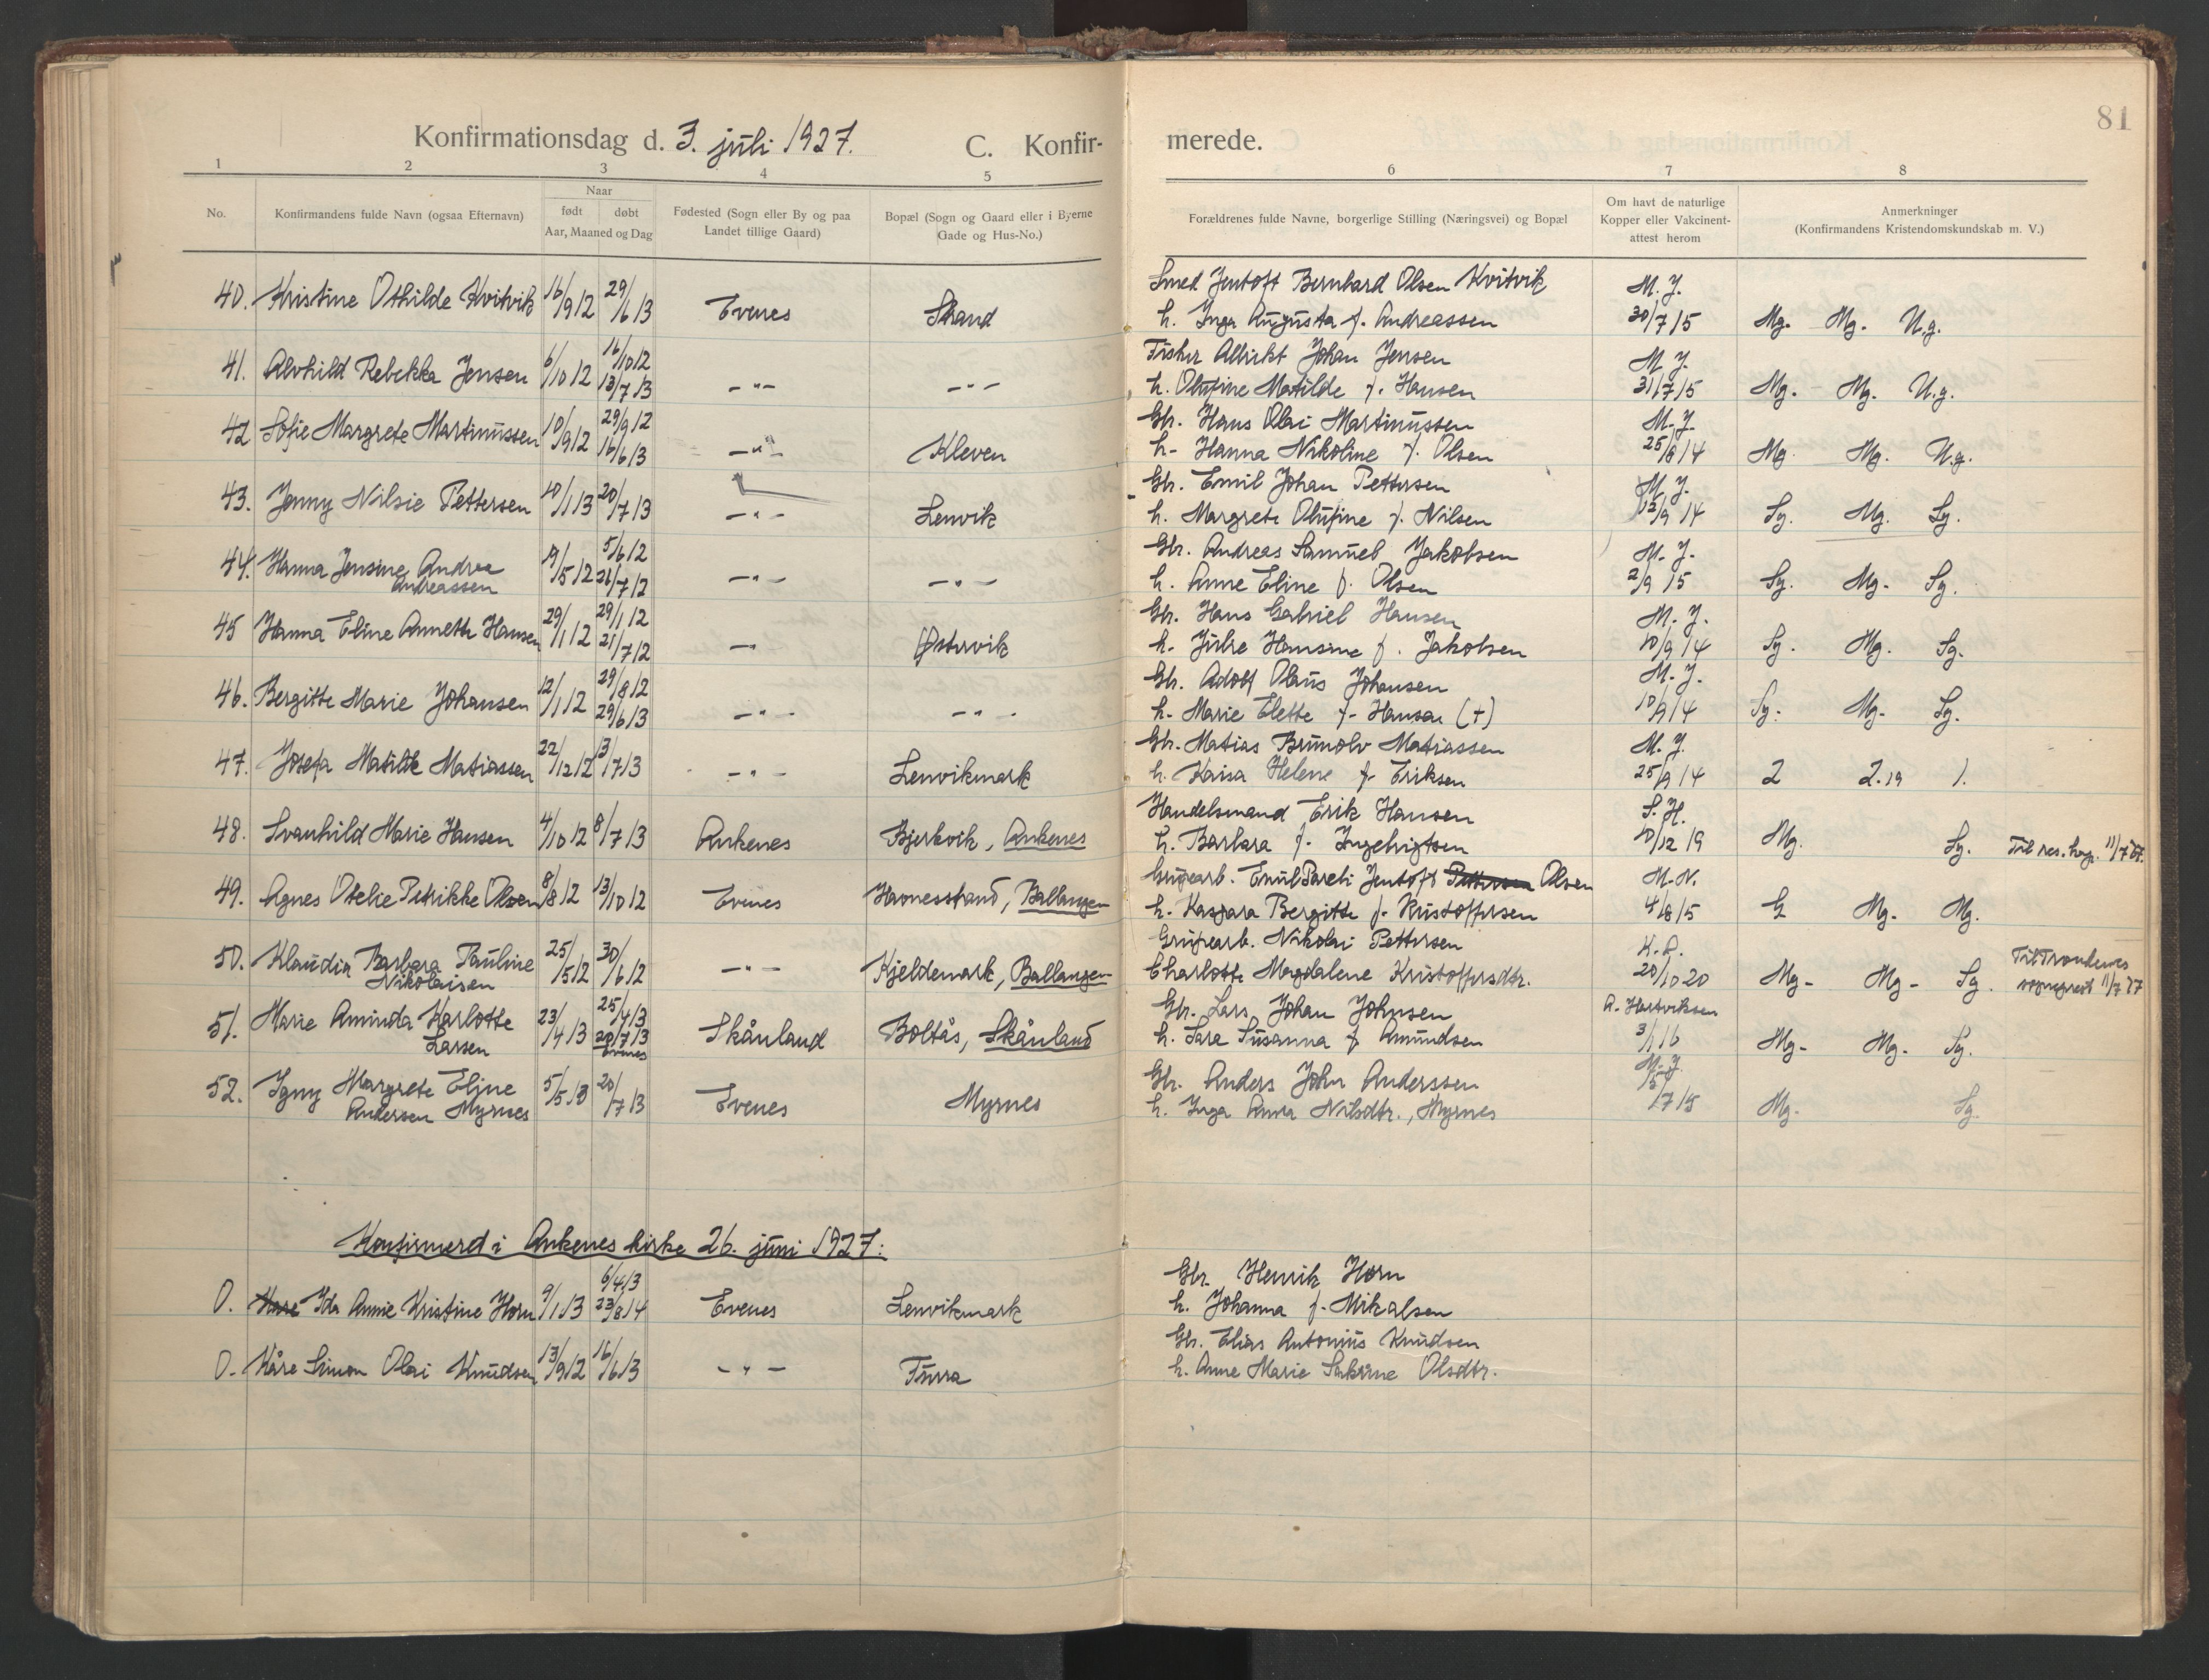 81
Konfirmationsdag d. 3. juli 1927. C. Konfir- merede.
1 2 3 4 5 6 7 8
No. Konfirmandens fulde Navn (ogsaa Efternavn) Naar født døbt Aar, Maaned og Dag Fødested (Sogn eller By og paa Landet tillige Gaard) Bopæl (Sogn og Gaard eller i Byerne Gade og Hus-No.) Forældrenes fulde Navne, borgerlige Stilling (Næringsvei) og Bopæl Om havt de naturlige Kopper eller Vakcinent-attest herom Anmerkninger (Konfirmandens Kristendomskundskab m. V.)
40. Kristine Othilde Kvitvik 16/9 12 29/6 13 Evenes Strand Smed Jentoft Bernhard Olsen Kvitvik M. J.
h. Inga Augusta f. Andreassen 30/7 15 Mg. Mg. U.g.
41. Alvhild Rebekka Jensen 6/10 12 16/10 12 13/7 13 -"- -"- Fisker Albrikt Johan Jensen M. J.
h. Olufine Matilde f. Hansen 31/7 15 Mg. Mg. U.g.
42 Sofie Margrete Martinussen 10/9 12 29/9 12 16/6 13 -"- Kleven Gbr. Hans Olai Martinussen M. J.
h. Hanna Nikoline f. Olsen 25/8 14 Mg. Mg. U.g.
43. Jenny Nilsie Pettersen 10/1 13 20/7 13 -"- Lenvik Gbr. Emil Johan Pettersen M. J.
h. Margrete Olufine f. Nilsen 13/9 14 Sg. Mg. Sg.
44. Hanna Jensine Andrea Andreassen 19/5 12 5/6 12 21/7 12 -"- -"- Gbr. Andreas Samuel Jakobsen M. J.
h. Anne Eline f. Olsen 2/9 15 Sg. Mg. Sg.
45 Hanna Eline Annette Hansen 29/1 12 29/1 12 21/7 12 -"- Østervik Gbr. Hans Gabriel Hansen M. J.
h. Julie Hansine f. Jakobsen 10/9 14 Sg. Mg. Sg.
46. Bergitte Marie Johansen 12/1 12 29/8 12 29/6 13 -"- -"- Gbr. Adolf Olaus Johansen M. J.
h. Marie Elette f. Hansen (+) 10/9 14 Sg. Mg. Sg.
47. Josefa Matilde Matiassen 22/12 12 13/7 13 -"- Lenvikmark Gbr. Matias Brunolv Matiassen M. J.
h. Kaisa Helene f. Eriksen 25/9 14 2 2.19 1.
48. Svanhild Marie Hansen 4/10 12 8/7 13 Ankenes Bjerkvik, Ankenes Handelsmand Erik Hansen S. H.
h. Barbara f. Ingebrigtsen 10/12 19 Mg. Sg. Til res. kap. 11/7 27.
49. Agnes Otelie Petrikke Olsen 8/8 12 13/10 12 Evenes Havnesstrand, Ballangen Grubearb. Emil Jentoft Pettersen Olsen M. N.
h. Kaspara Bergitte f. Kristoffersen 4/8 15 G Mg. Mg.
50. Klaudia Barbara Pauline Nikolaisen 25/5 12 30/6 12 -"- Kjeldemark, Ballangen Grubearb. Nikolai Pettersen
Charlotte Magdalene Kristoffersdtr. 20/10 20 Mg- Mg- Sg. Til Trondenes sogneprest 11/7 27
51. Marie Aminda Karlotte Larsen 23/4 13 25/4 13 20/7 13 Evenes Skånland Boltås, Skånland Gbr. Lars Johan Johnsen A. Hartviksen
h. Sara Susanna f. Amundsen 3/1 16 Mg- Mg- Sg.
52. Igny Margrete Eline Andersen Myrnes 5/5 13 20/7 13 Evenes Myrnes Gbr. Anders John Anderssen M. J.
h. Inga Anna Nilsdtr., Myrnes 15/7 15 Mg. Sg.
Konfirmerd i Ankenes kirke 26. juni 1927:
0. Kare Ida Annie Kristine Horn 9/1 13 6/4 13 23/8 14 Evenes Lenvikmark Gbr. Henrik Horn
h. Johanna f. Mikalsen
0. Kåre Simon Olai Knudsen 13/9 12 16/6 13 -"- Turra Gbr. Elias Antonius Knudsen
h. Anne Marie Sakrine Olsdtr.